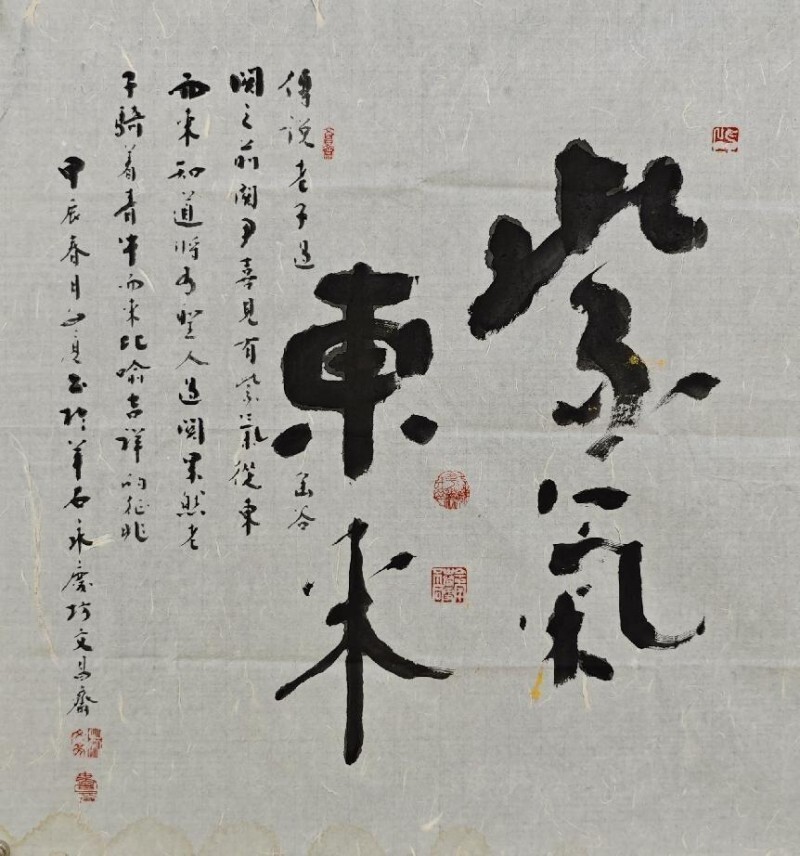 紫氣
東來
傳說老子過函谷
關之前關尹喜見有紫氣從東
而來知道將有聖人過關果然老
子騎着青牛而來比喻吉祥的征兆
甲辰春月書於羊石永慶坊文易齋